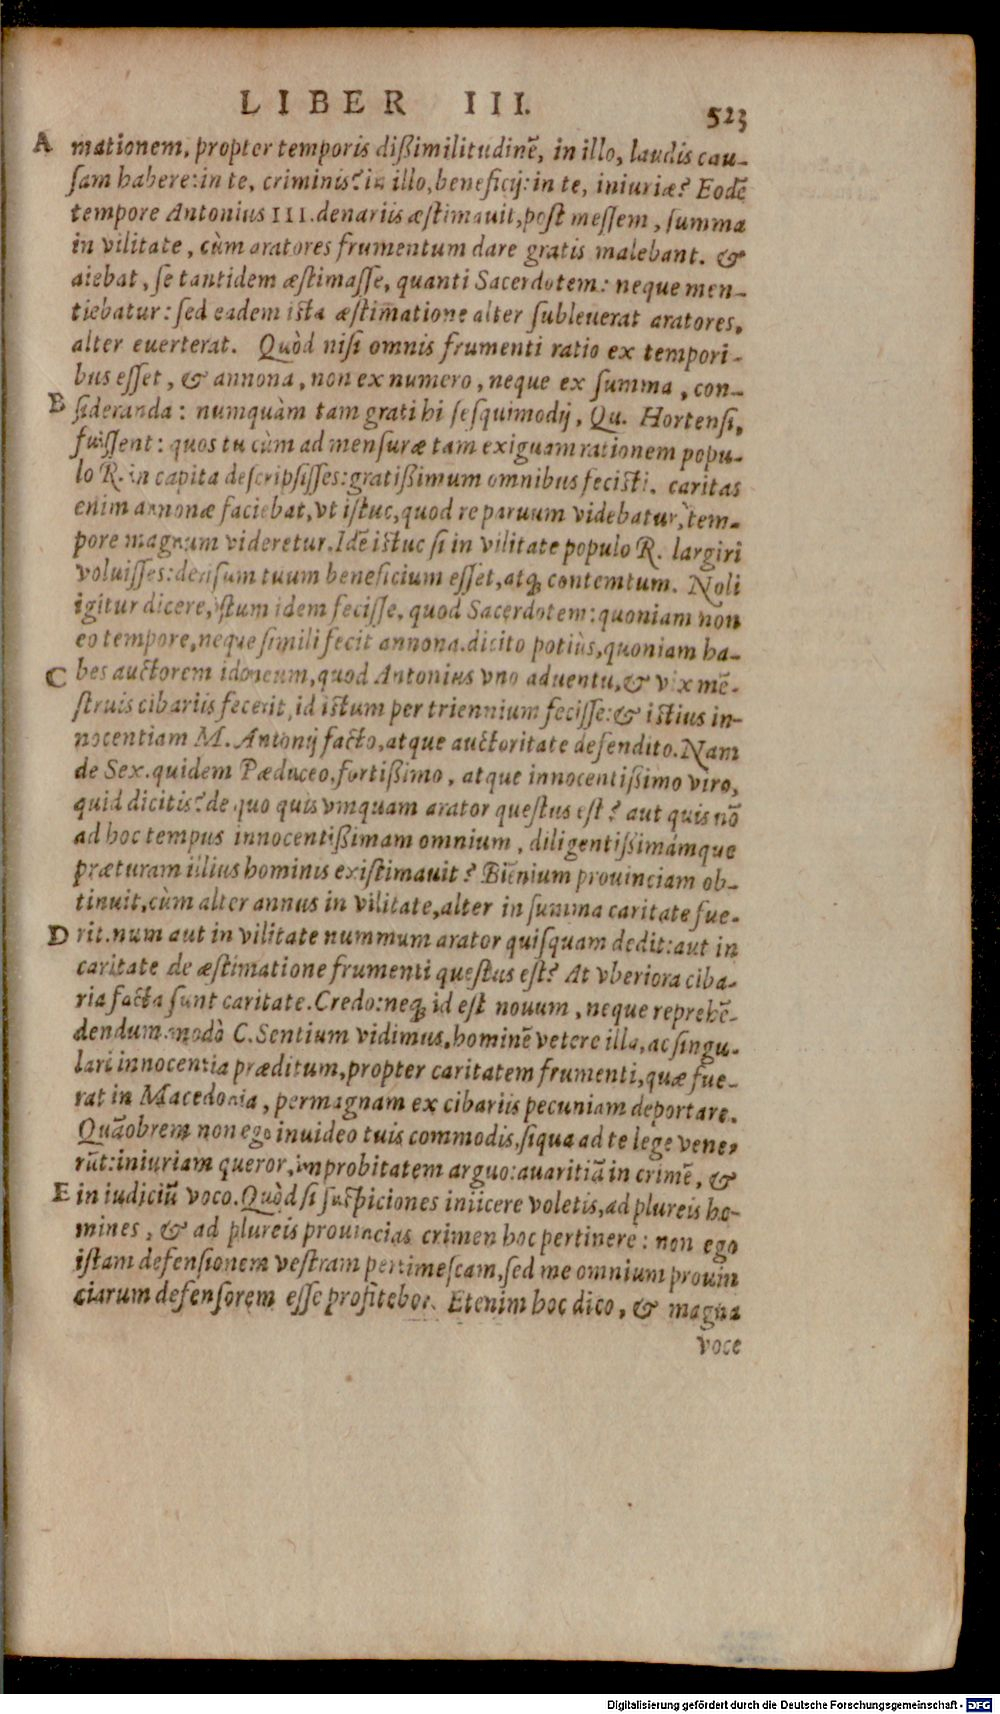 LIBER III. 523
A mationem, propter temporis dißimilitudinē, in illo, laudis cau-
ſam habere: in te, criminis? in illo, beneficij: in te, iniuriæ? Eodē
tempore Antonius III. denariis æſtimauit, poſt meſſem, ſumma
in vilitate, cùm aratores frumentum dare gratis malebant. &
aiebat, ſe tantidem æſtimaſſe, quanti Sacerdotem: neque men-
tiebatur: ſed eadem iſta æſtimatione alter ſubleuerat aratores,
alter euerterat. Quòd niſi omnis frumenti ratio ex tempori-
bus eſſet, & annona, non ex numero, neque ex ſumma, con-
B ſideranda: numquàm tam grati hi ſeſquimodij, Qu. Hortenſi,
fuiſſent: quos tu cùm ad menſuræ tam exiguam rationem popu-
lo R. in capita deſcripſiſſes: gratißimum omnibus feciſti. caritas
enim annonæ faciebat, vt iſtuc, quod re paruum videbatur, tem-
pore magnum videretur. Idē iſtuc ſi in vilitate populo R. largiri
voluiſſes: deriſum tuum beneficium eſſet, atq; contemtum. Noli
igitur dicere, iſtum idem feciſſe, quod Sacerdotem: quoniam non
eo tempore, neque ſimili fecit annona. dicito potiùs, quoniam ha-
C bes auctorem idoneum, quod Antonius vno aduentu, & vix mē-
ſtruis cibariis fecerit, id iſtum per triennium feciſſe: & iſtius in-
nocentiam M. Antonij facto, atque auctoritate defendito. Nam
de Sex. quidem Pæduceo, fortißimo, atque innocentißimo viro,
quid dicitis? de quo quis vmquam arator queſtus eſt? aut quis nō
ad hoc tempus innocentißimam omnium, diligentißimámque
præturam illius hominis exiſtimauit? Biēnium prouinciam ob-
tinuit, cùm alter annus in vilitate, alter in ſumma caritate fue-
D rit. num aut in vilitate nummum arator quiſquam dedit: aut in
caritate de æſtimatione frumenti queſtus eſt? At vberiora ciba-
ria facta ſunt caritate. Credo: neq; id eſt nouum, neque reprehē-
dendum. modò C. Sentium vidimus, hominē vetere illa, ac ſingu-
lari innocentia præditum, propter caritatem frumenti, quæ fue-
rat in Macedonia, permagnam ex cibariis pecuniam deportare.
Quāobrem non ego inuideo tuis commodis, ſiqua ad te lege vene-
rūt: iniuriam queror, improbitatem arguo: auaritiā in crimē, &
E in iudiciū voco. Quòd ſi ſuſpiciones iniicere voletis, ad plureis ho-
mines, & ad plureis prouincias crimen hoc pertinere: non ego
iſtam defenſionem veſtram pertimeſcam, ſed me omnium prouin
ciarum defenſorem eſſe profitebor. Etenim hoc dico, & magna
voce
Digitalisierung gefördert durch die Deutsche Forschungsgemeinschaft - DFG